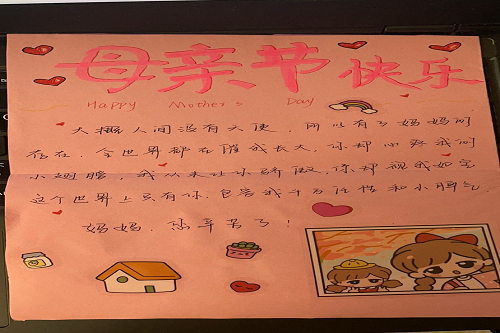 母亲节快乐
Happy Mother's Day
大概人间没有天使,所以有了妈妈的
存在,全世界都在催我长大,你却心我的
小翅膀,我从来让小骄傲,你却视我如宝
这个世界上只有你,包容我千万任性和小脾气,
妈妈,您辛苦了!